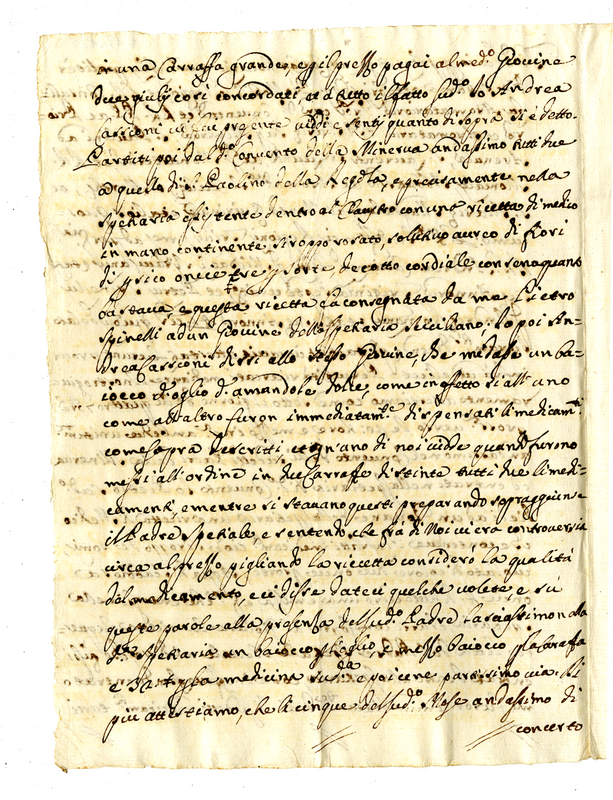 in una Carraffa grande, e p il prezzo pagai al med.o Giovine
due giulij così concordati, et a tutto il fatto sud.o Io Andrea
Casconi vi fui presente viddi e sentij quanto di sopra si è detto.
Partiti poi dal d.o Convento della Minerva andassimo tutti due
ad quello di S. Paolino della Regola, e precisamente nella
speziaria esistente dentro al Claustro con una ricetta di medico
in mano continente siroppo rosato solutivo aureo di fiori
di persico oncie tre p sorte decotto cordiale con sena quanto
bastava, e questa ricetta fu consegnata da me Pietro
Spinelli ad un Giovine della speziaria siciliano; Io poi An=
drea Casconi dissi allo stesso Giovine, che mi dasse un ba=
iocco d'oglio d'amandole dolce, come in effetto sì all'uno
come all'altro furon immediatam.te dispensati li medicam.ti
come sopra descritti, et ogn'uno di noi vidde quando furono
messi all'ordine in due Carraffe distinte tutti due li medi=
camenti, e mentre si stavano questi preparando sopraggiunse
il Padre speziale, e sentendo che frà di Noi vi era controversia
circa al prezzo pigliando la ricetta considerò la qualità
del medicamento, e ci disse dateci quelche volete, e sù
queste parole alla presenza del sud.o Padre lasciassimo alla
d.a speziaria un baiocco p l'oglio, e mezzo baiocco p la caraffa
e p la medicina sud.a e poi ce ne partissimo via. Di
più attestiamo, che li cinque del sud.o Mese andassimo di
concerto